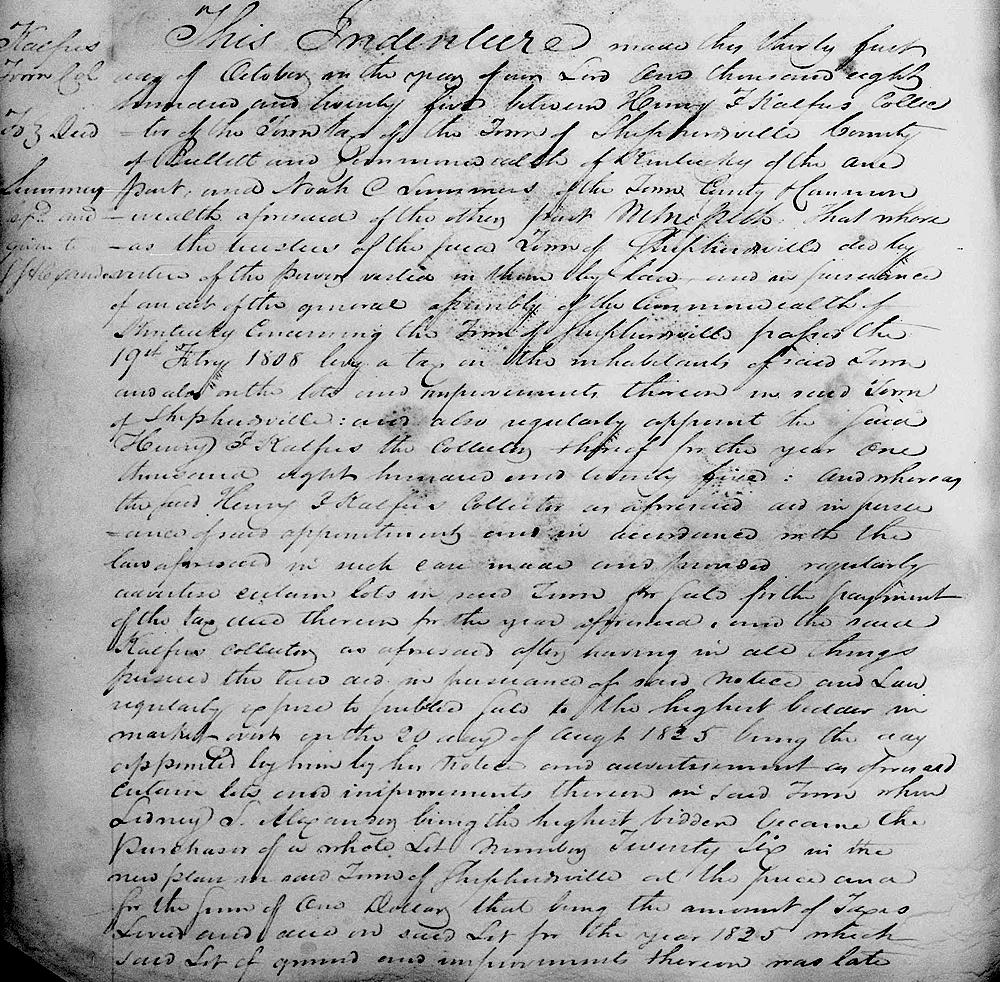 This Indenture made this thirty first
Kalfus
Town Col
To } Deed
Summers
day of October in the year of our Lord One thousand eight
hundred and twenty five between Henry F Kalfus Collec
-tor of the Town tax of the Town of Shepherdsville County
of Bullett and Commonwealth of Kentucky of the one
part and Noah C Summers of the Town County & Common
-wealth aforesaid of the other part Witnesseth: That where
-as the trustees of the said Town of Shepherdsville did by
virtue of the power vested in them by law and in pursuance
of an act of the general assembly of the Commonwealth of
Kentucky Concerning the Town of Shepherdsville passed the
19th Feby 1808 levy a tax on the inhabitants of said Town
and also on the lots and improvements thereon in said Town
of Shepherdsville: and also regularly appoint the said
Henry F Kalfus the Collector thereof for the year One
thousand eight hundred and twenty five: and whereas
the said Henry F Kalfus Collector as aforesaid did in persu
-ance of said appointment and in accordance with the
law aforesaid in such case made and provided regularly
advertise certain lots in said Town for sale for the payment
of the tax due thereon for the year aforesaid, and the said
Kalfus collector as aforesaid after having in all things
pursued the law did in pursuance of said notice and Law
regularly expose to public sale to the highest bidder in
market overt on the 20 day of Augt 1825 being the day
appointed by him by his Notice and advertisement as aforesaid
certain lots and improvements thereon in said Town when
Sidney S. Alexander being the highest bidder became the
Purchaser of a whole Lot Number Twenty Six in the
new plan in said Town of Shepherdsville at the price and
for the sum of One Dollar that being the amount of Taxes
Levied and due on said Lot for the year 1825 which
said Lot of ground and improvements thereon was late